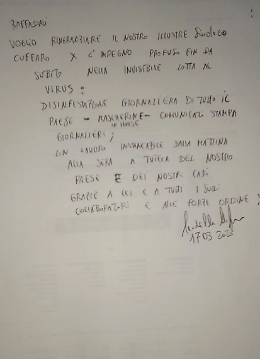 RAFFADALI
VOGLIO RINGRAZIARE IL NOSTRO ILLUSTRE SINDACO
CUFFARO X L'IMPEGNO PROFUSO FIN DA
SUBITO NELLA INVISIBILE LOTTA AL
VIRUS:
DISINFESTAZIONE GIORNALIERA DI TUTTO IL
PAESE - MASCHERINE - COMUNICATI STAMPA
GIORNALIERI;
UN LAVORO INSTANCABILE DALLA MATTINA
ALLA SERA A TUTELA DEL NOSTRO
PAESE E DEI NOSTRI CARI
GRAZIE A LEI E A TUTTI I SUOI
COLLABORATORI E ALLE FORZE ORDINE